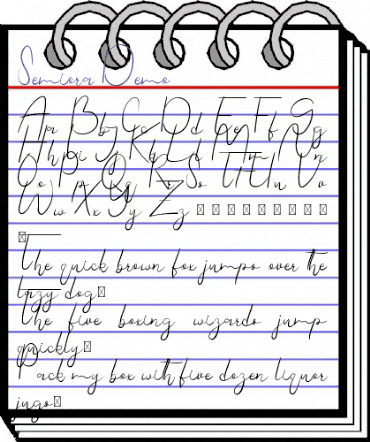 Semiora Demo
Aa Bb Cc Dd Ee Ff Gg
Hh Ii Jj Kk Ll Mm Nn
Oo Pp Qq Rr Ss Tt Uu Vv
Ww Xx Yy Zz
The quick brown fox jumps over the
lazy dog
The five boxing wizards jump
quickly
Pack my box with five dozen liquor
jugs